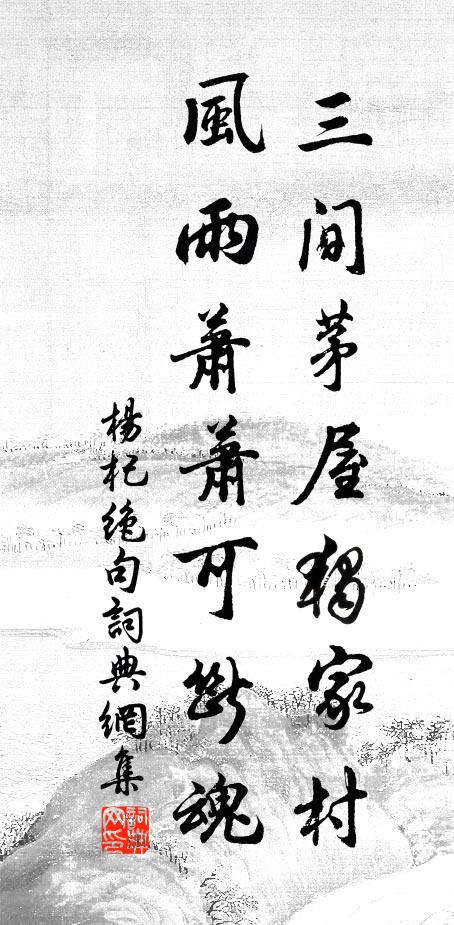 三間茅屋獨家村
風雨蕭蕭可斷魂
楊杞絶句詞典網集